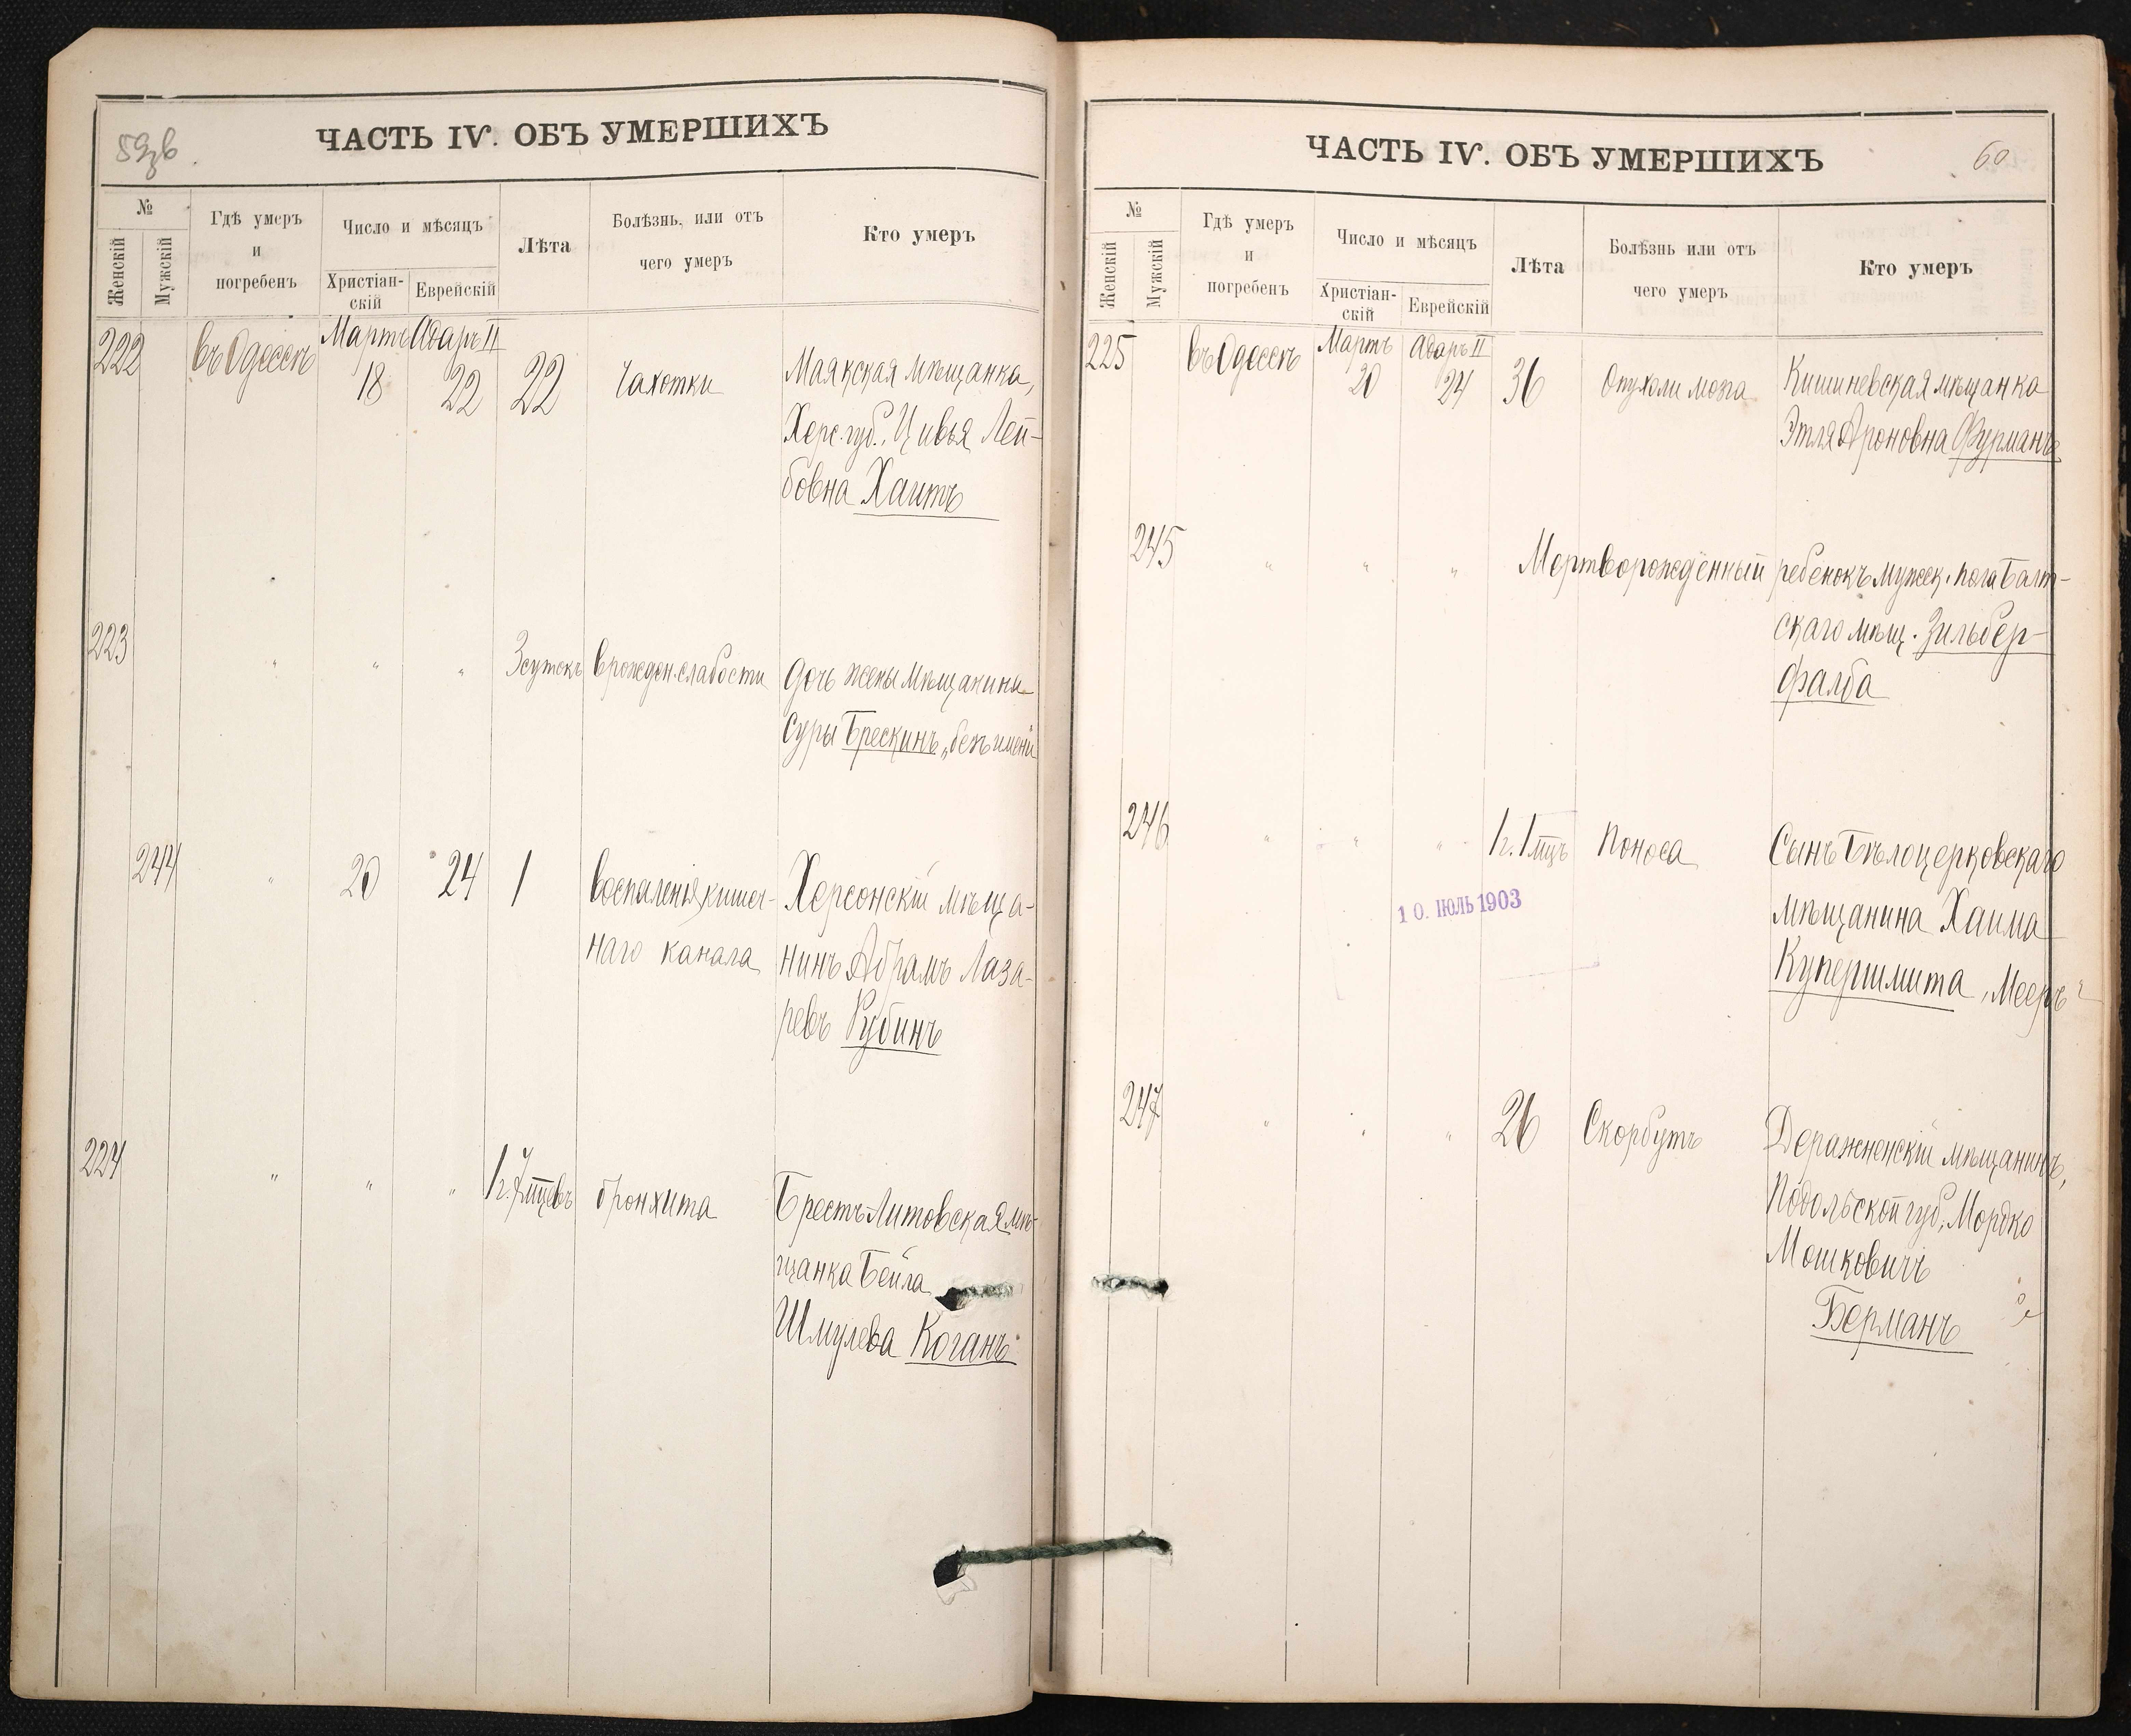 ЧАСТЬ IV. ОБЪ УМЕРШИХЪ
№
Женскій
Мужскій
Гдѣ умеръ
и
погребенъ
Число и мѣсяцъ
Христіан-
скій
Еврейскій
Лѣта
Болѣзнь, или отъ
чего умеръ
Кто умеръ
222 въ Одессѣ Мартъ Адаръ II
18 22 22 Чахотки Маякская мѣщанка,
Херс. губ., Цивья Лей-
бовна Хаитъ
223 " " " 3 сутокъ врожден. слабости дочь жены мѣщанина
Суры Брескинъ, „безъ имени
244 " 20 24 1 воспаленія кишеч- Херсонскій мѣща-
наго канала нинъ Абрамъ Лаза-
ревъ Рубинъ
224 " " " 1 г. 7 мѣцевъ бронхита Брестъ-Литовская мѣ-
щанка Бейла
Шмулева Коганъ
ЧАСТЬ IV. ОБЪ УМЕРШИХЪ
60
№
Женскій
Мужскій
Гдѣ умеръ
и
погребенъ
Число и мѣсяцъ
Христіан-
скій
Еврейскій
Лѣта
Болѣзнь или отъ
чего умеръ
Кто умеръ
225 въ Одессѣ Мартъ Адаръ II
20 24 36 Опухоли мозга Кишиневская мѣщанка
Этля Ароновна Фурманъ
245 " " " Мертворожденный ребенокъ мужск. пола Балт-
скаго мѣщ. Зильбер-
фалба
246 " " " 1 г. 1 мцъ Поноса Сынъ Бѣлоцерковскаго
мѣщанина Хаима
Купершмита „Мееръ"
10. ІЮЛЬ 1903
247 " " " 26 Скорбутъ Деражненскій мѣщанинъ,
Подольской губ., Мордко
Мошковичъ
Берманъ